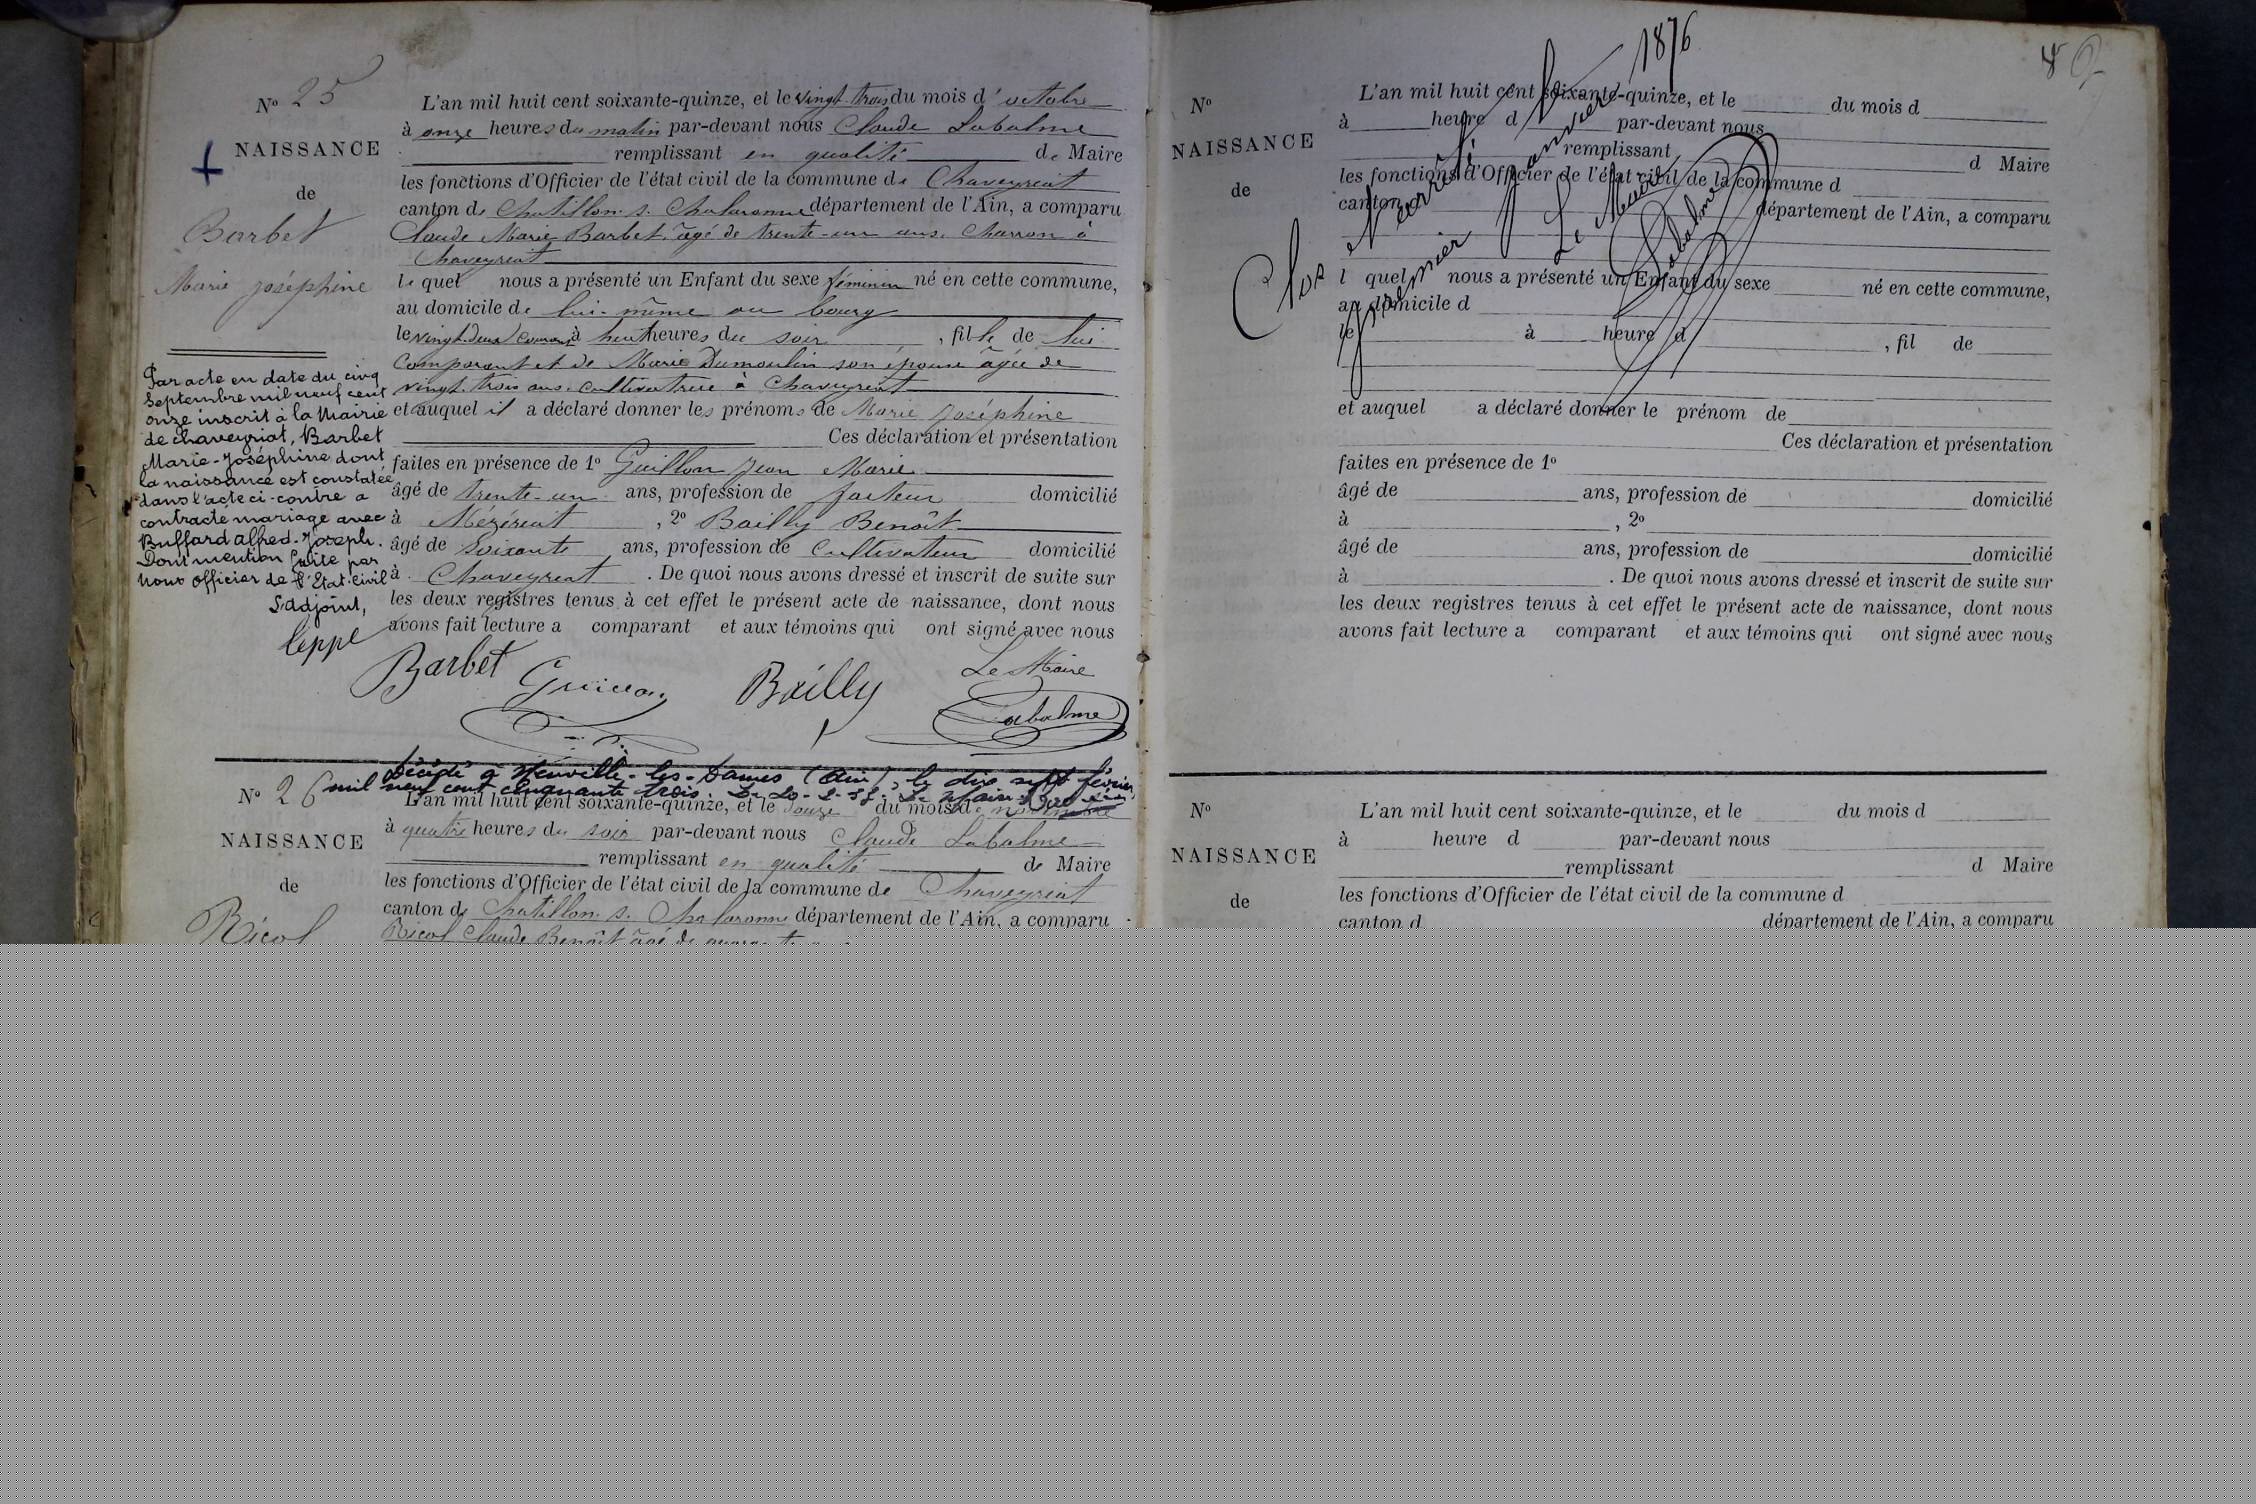 Nº 25
NAISSANCE
de
Barbet
Marie Joséphine
Par acte en date du cinq
Septembre mil neuf cent
onze inscrit à la Mairie
de chaveyriat, Barbet
Marie-Joséphine dont
la naissance est constatée
dans l'acte ci-contre a
contracté mariage avec
Buffard Alfred-Joseph.
Dont mention faite par
Nous officier de l'Etat-Civil
L'adjoint,
L'an mil huit cent soixante-quinze, et le vingt trois du mois d'octobre
à onze heures du matin par-devant nous Claude Labalme
remplissant en qualité de Maire
les fonctions d'Officier de l'état civil de la commune de Chaveyriat
canton de Chatillon s. Chalaronne département de l'Ain, a comparu
Claude Marie Barbet, âgé de trente-un ans, Charron à
Chaveyriat
lequel nous a présenté un Enfant du sexe féminin né en cette commune,
au domicile de lui-même au bourg
le vingt-deux courant à huit heures du soir, fille de lui
comparant et de Marie Dumoulin son épouse âgée de
vingt trois ans, cultivatrice à Chaveyriat
et auquel il a déclaré donner les prénoms de Marie Joséphine
Ces déclaration et présentation
faites en présence de 1º Guillon Jean Marie
âgé de trente-un ans, profession de facteur domicilié
à Mézériat, 2º Bailly Benoît
âgé de Soixante ans, profession de Cultivateur domicilié
à Chaveyriat. De quoi nous avons dressé et inscrit de suite sur
les deux registres tenus à cet effet le présent acte de naissance, dont nous
avons fait lecture a comparant et aux témoins qui ont signé avec nous
Barbet Guillon Bailly Le Maire
Labalme
Décédé à Neuville-les-Dames (Ain), le dix sept février
mil neuf cent cinquante trois. Le Maire
Nº 26
NAISSANCE
de
Ricol
L'an mil huit cent soixante-quinze, et le douze du mois de novembre
à quatre heures du soir par-devant nous Claude Labalme
remplissant en qualité de Maire
les fonctions d'Officier de l'état civil de la commune de Chaveyriat
canton de Chatillon s. Chalaronne département de l'Ain, a comparu
Ricol Claude Benoît âgé de
Nº
NAISSANCE
de
L'an mil huit cent soixante-quinze, et le du mois d
à heure d par-devant nous
remplissant d Maire
les fonctions d'Officier de l'état civil de la commune d
canton département de l'Ain, a comparu
l quel nous a présenté un Enfant du sexe né en cette commune,
au domicile d
le à heure d , fil de
et auquel a déclaré donner le prénom de
Ces déclaration et présentation
faites en présence de 1º
âgé de ans, profession de domicilié
à , 2º
âgé de ans, profession de domicilié
à . De quoi nous avons dressé et inscrit de suite sur
les deux registres tenus à cet effet le présent acte de naissance, dont nous
avons fait lecture a comparant et aux témoins qui ont signé avec nous
Clos et arrêté le
premier Janvier 1876
Le Maire
Labalme
Nº
NAISSANCE
de
L'an mil huit cent soixante-quinze, et le du mois d
à heure d par-devant nous
remplissant d Maire
les fonctions d'Officier de l'état civil de la commune d
canton d département de l'Ain, a comparu